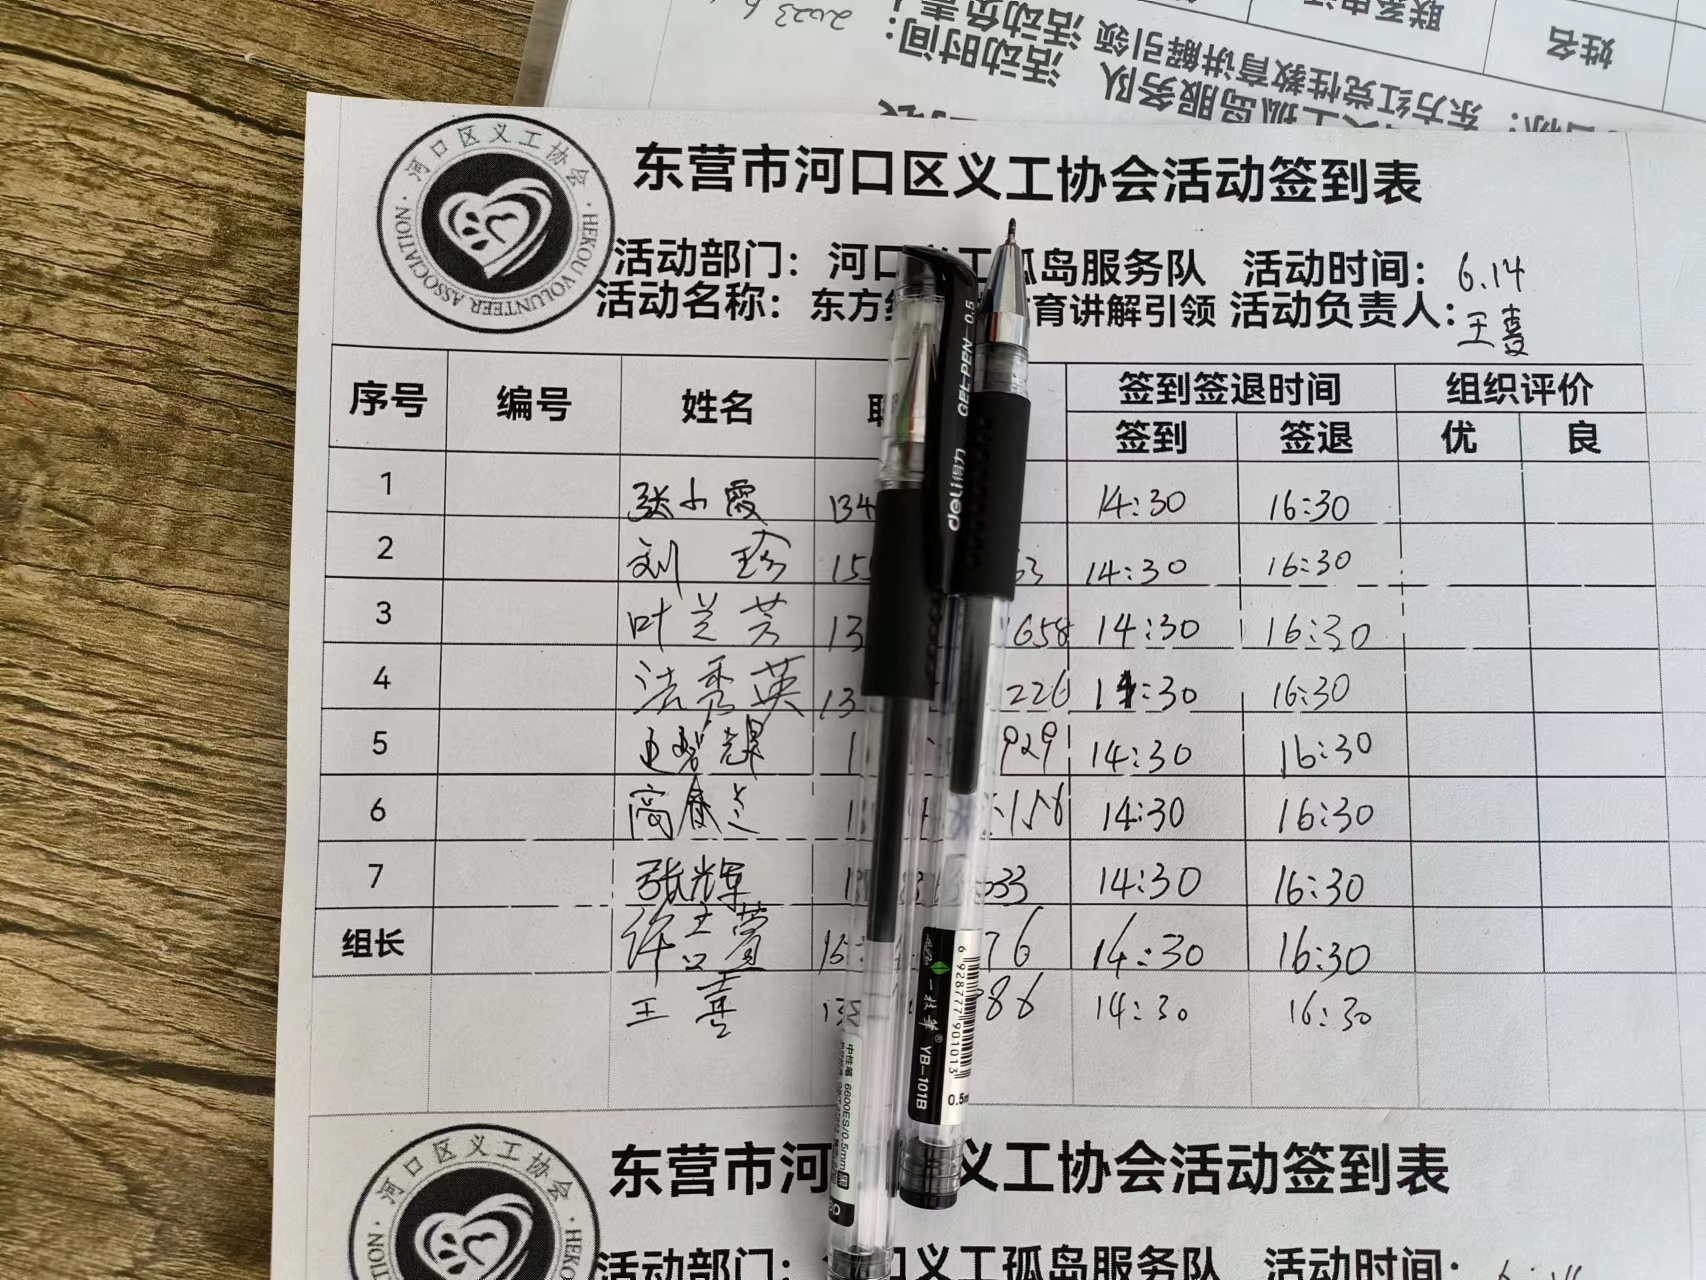 2023
姓名
活动时间：
东方红党性教育讲解引领
河口区义工协会
HEKOU VOLUNTEER ASSOCIATION
东营市河口区义工协会活动签到表
活动部门：河口义工孤岛服务队 活动时间：6.14
活动名称：东方 育讲解引领 活动负责人：王喜
序号 编号 姓名 签到签退时间 组织评价
签到 签退 优 良
1 张小霞 134 14:30 16:30
2 刘珍 155 63 14:30 16:30
3 叶兰芳 13 1658 14:30 16:30
4 法秀英 13 226 14:30 16:30
5 929 14:30 16:30
6 高春兰 156 14:30 16:30
7 张辉 033 14:30 16:30
组长 许 萱 15 76 14:30 16:30
王喜 13 86 14:30 16:30
deli得力 GEL PEN 0.5
一枝笔® YB-101B
6928777901013
0.5m
中性笔 6600ES/0.5mm
东营市河 义工协会活动签到表
河口区义工协会
活动部门： 口义工孤岛服务队 活动时间：